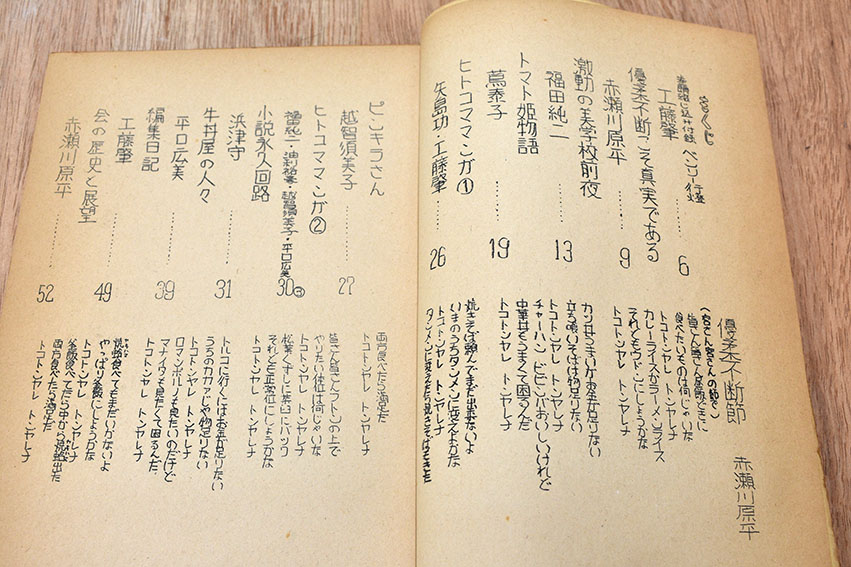 もくじ
工藤肇 ……… 6
優柔不断こそ真実である
赤瀬川原平 ……… 9
激動の美学校前夜
福田純二 ……… 13
トマト姫物語
蔦泰子 ……… 19
ヒトコママンガ①
矢島功・工藤肇 ……… 26
優柔不断節 赤瀬川原平
(宮さん宮さんの節で)
皆さん皆さん昼飯どきに
食べたいものは何じゃいな
トコトンヤレ トンヤレナ
カレーライスかラーメンライス
それともウドンにしようかな
トコトンヤレ トンヤレナ
カツ丼うまいがお金が足りない
立ち喰いそばは物足りない
トコトンヤレ トンヤレナ
チャーハン ビビンバおいしいけれど
中華丼もうまくて困るんだ
トコトンヤレ トンヤレナ
焼きそば頼んでまだ出来ないよ
いまのうちタンメンに変えよかな
トコトンヤレ トンヤレナ
ピンキラさん
越智須美子 ……… 27
ヒトコママンガ②
越智須美子・平口広美 ……… 30
小説永久回路
浜津守 ……… 31
牛丼屋の人々
平口広美 ……… 39
編集日記
工藤肇 ……… 49
会の歴史と展望
赤瀬川原平 ……… 52
両方食べたら満足だ
トコトンヤレ トンヤレナ
皆さん皆さんフトンの上で
やりたい体位は何じゃいな
トコトンヤレ トンヤレナ
松葉くずしに茶臼にバック
それとも正常位にしようかな
トコトンヤレ トンヤレナ
トルコに行くにはお金が足りない
うちのカカアじゃ物足りない
トコトンヤレ トンヤレナ
ロマンポルノも見たいのだけど
マナイタも見たくて困るんだ
トコトンヤレ トンヤレナ
やっぱり釜飯にしようかな
トコトンヤレ トンヤレナ